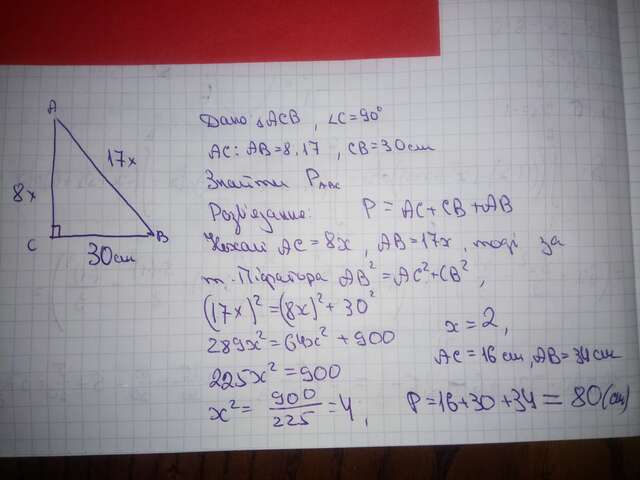 A
17x
8x
C
B
30 см
Дано: △ACB, ∠C=90°
AC:AB=8:17, CB=30см
Знайти P_ABC
Розв'язання: P = AC+CB+AB
Нехай AC=8x, AB=17x, тоді за
т. Піфагора AB²=AC²+CB²,
(17x)²=(8x)²+30²
289x²=64x²+900
225x²=900
x²=900/225=4,
x=2,
AC=16 см, AB=34 см
P=16+30+34=80(см)